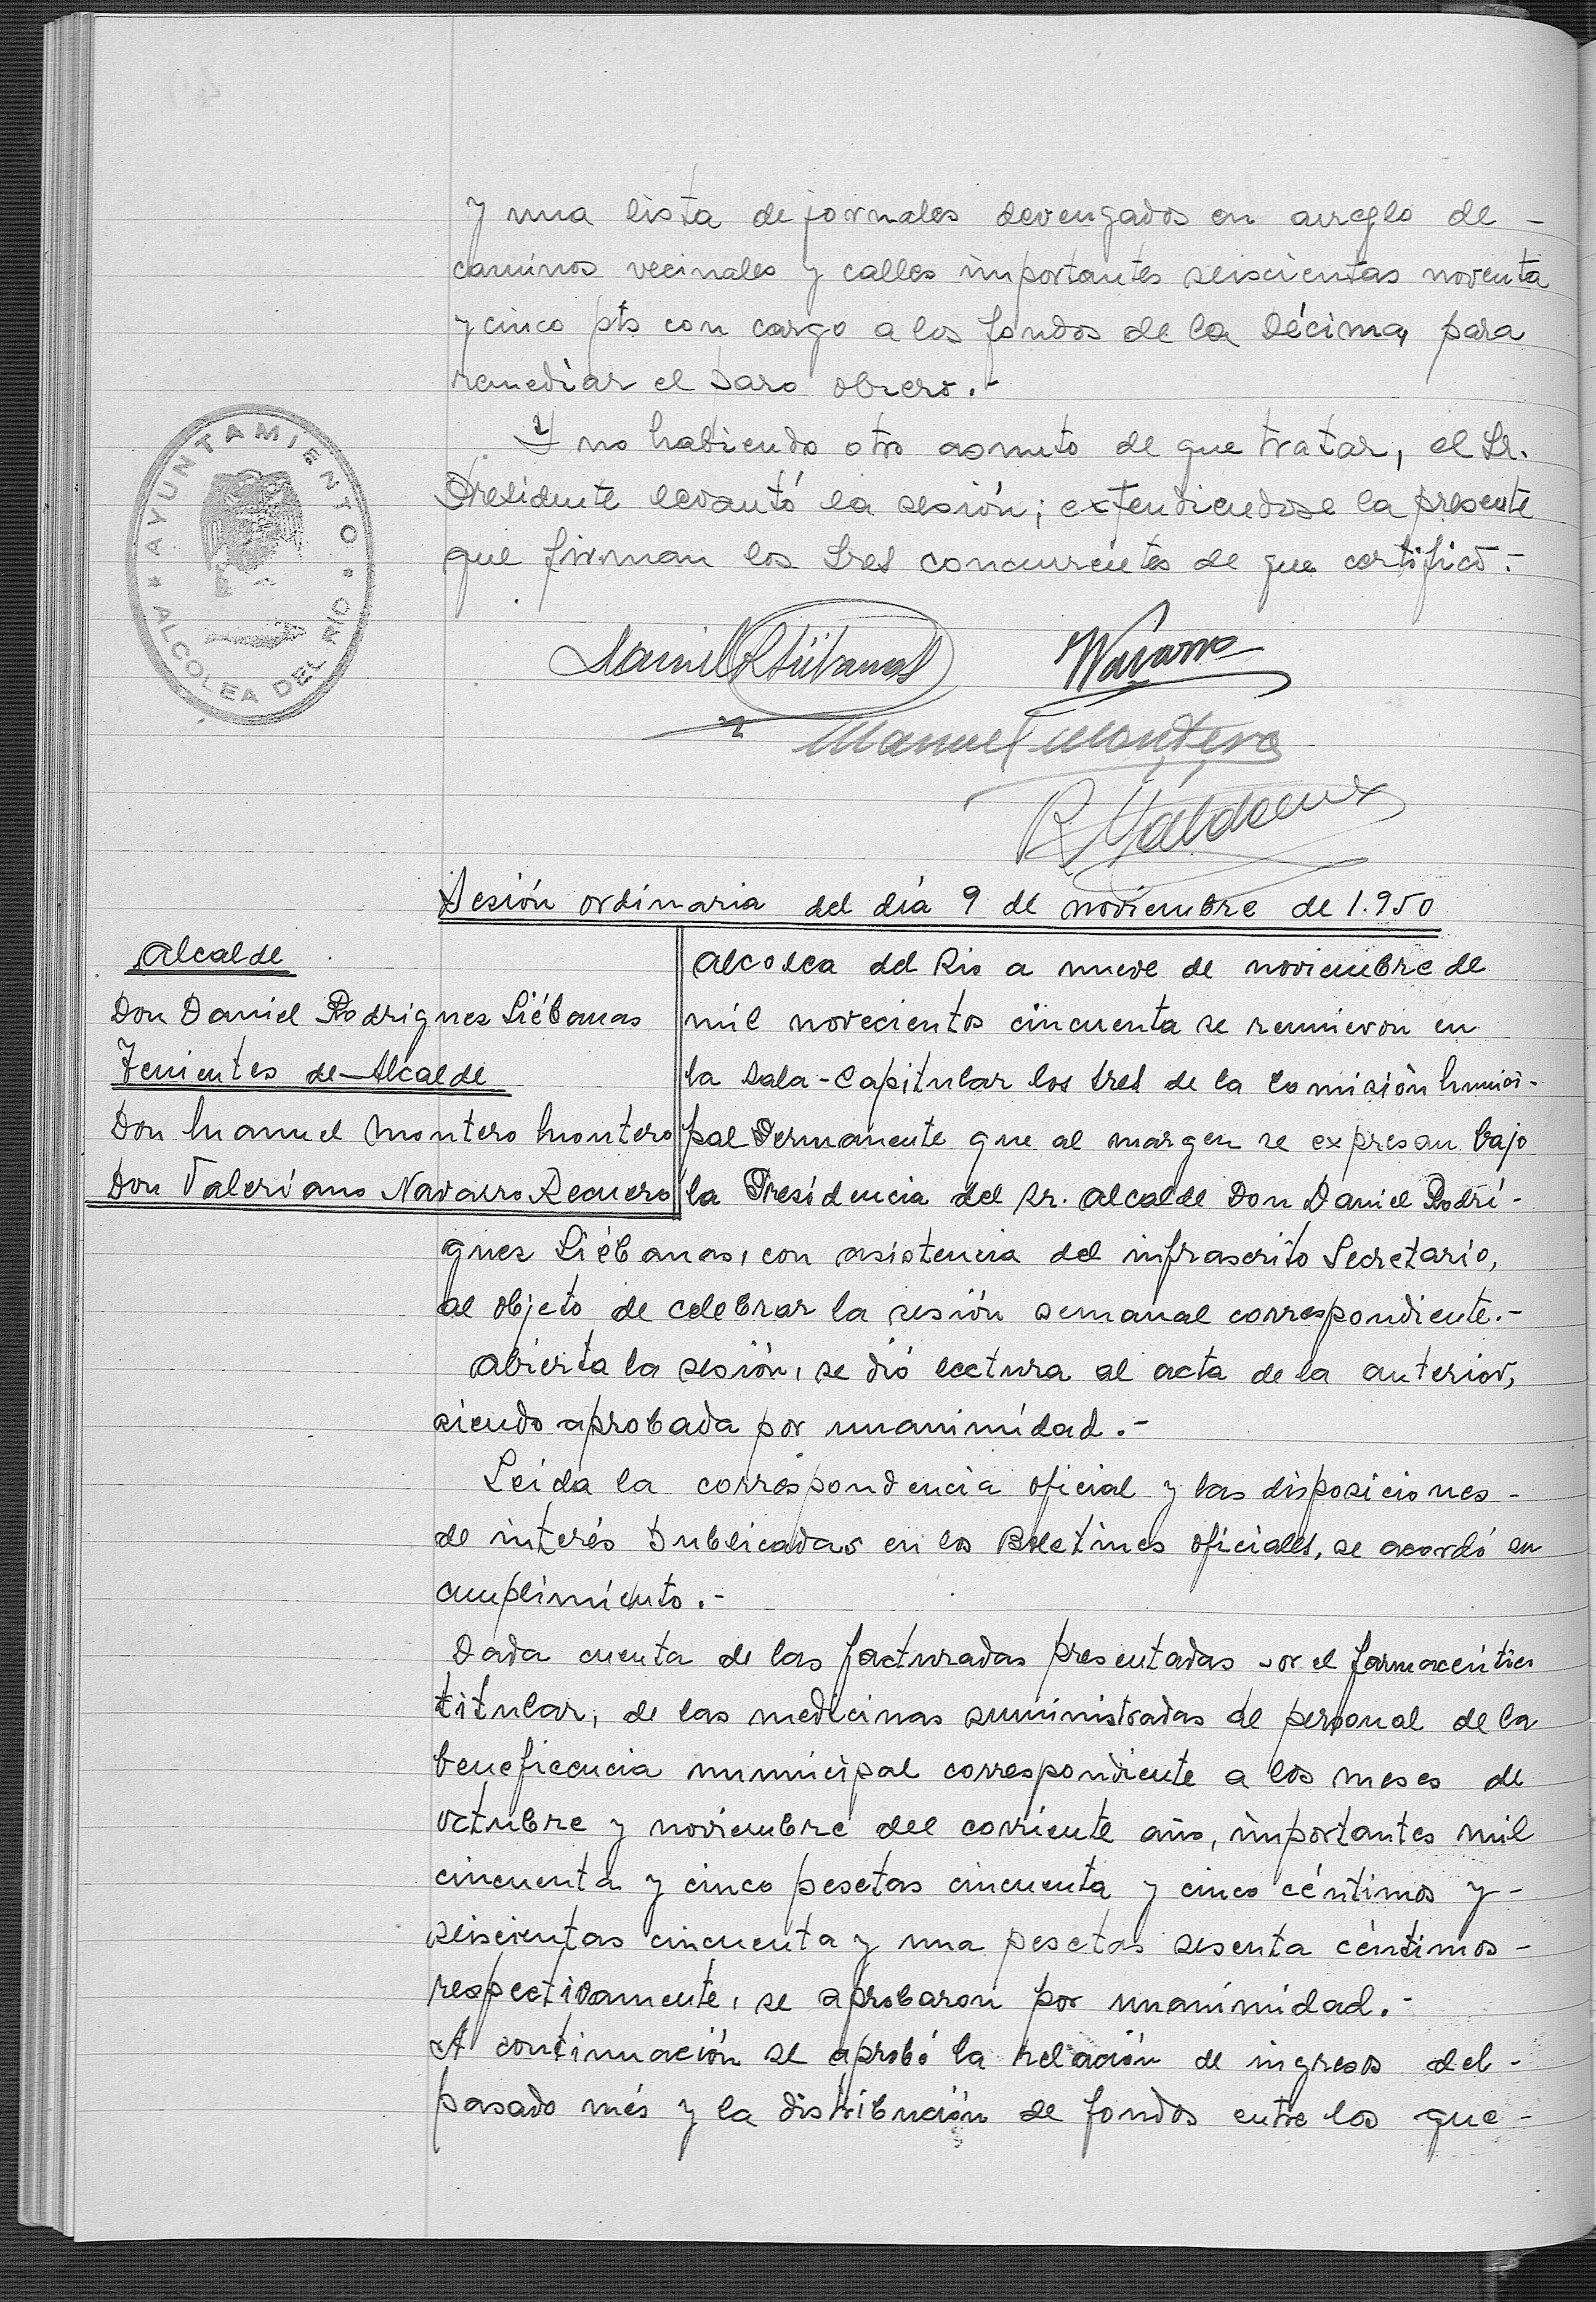 y una lista de jornales devengados en arreglo de -
caminos vecinales y calles importantes seiscientas noventa
y cinco pts con cargo a los fondos de la Décima, para
remediar el paro obrero.-
Y no habiendo otro asunto de que tratar, el Sr.
Presidente levantó la sesión; extendiendose la presente
que firman los Sres concurrentes de que certifico.-
AYUNTAMIENTO * ALCOLEA DEL RIO *
Daniel R Liébanas
Navarro
Manuel Montero
Sesión ordinaria del día 9 de noviembre de 1.950
Alcalde
Don Daniel Rodriguez Liébanas
Tenientes de Alcalde
Don Manuel Montero Montero
Don Valeriano Navarro Recuero
Alcolea del Rio a nueve de noviembre de
mil novecientos cincuenta se reunieron en
la Sala-Capitular los Sres de la Comisión Munici-
pal Permanente que al margen se expresan bajo
la Presidencia del Sr. Alcalde Don Daniel Rodrí-
guez Liébanas, con asistencia del infrascrito Secretario,
al objeto de celebrar la sesión semanal correspondiente.-
Abierta la sesión, se dió lectura al acta de la anterior,
siendo aprobada por unanimidad.-
Leida la correspondencia oficial y las disposiciones -
de interés publicadas en los Boletines oficiales, se acordó su
cumplimiento.-
Dada cuenta de las facturadas presentadas por el farmacéutico
titular, de las medicinas suministradas al personal de la
beneficencia municipal correspondiente a los meses de
octubre y noviembre del corriente año, importantes mil
cincuenta y cinco pesetas cincuenta y cinco céntimos y -
seiscientas cincuenta y una pesetas sesenta céntimos -
respectivamente, se aprobaron por unanimidad.-
A continuación se aprobó la relación de ingresos del -
pasado més y la distribución de fondos entre los que -